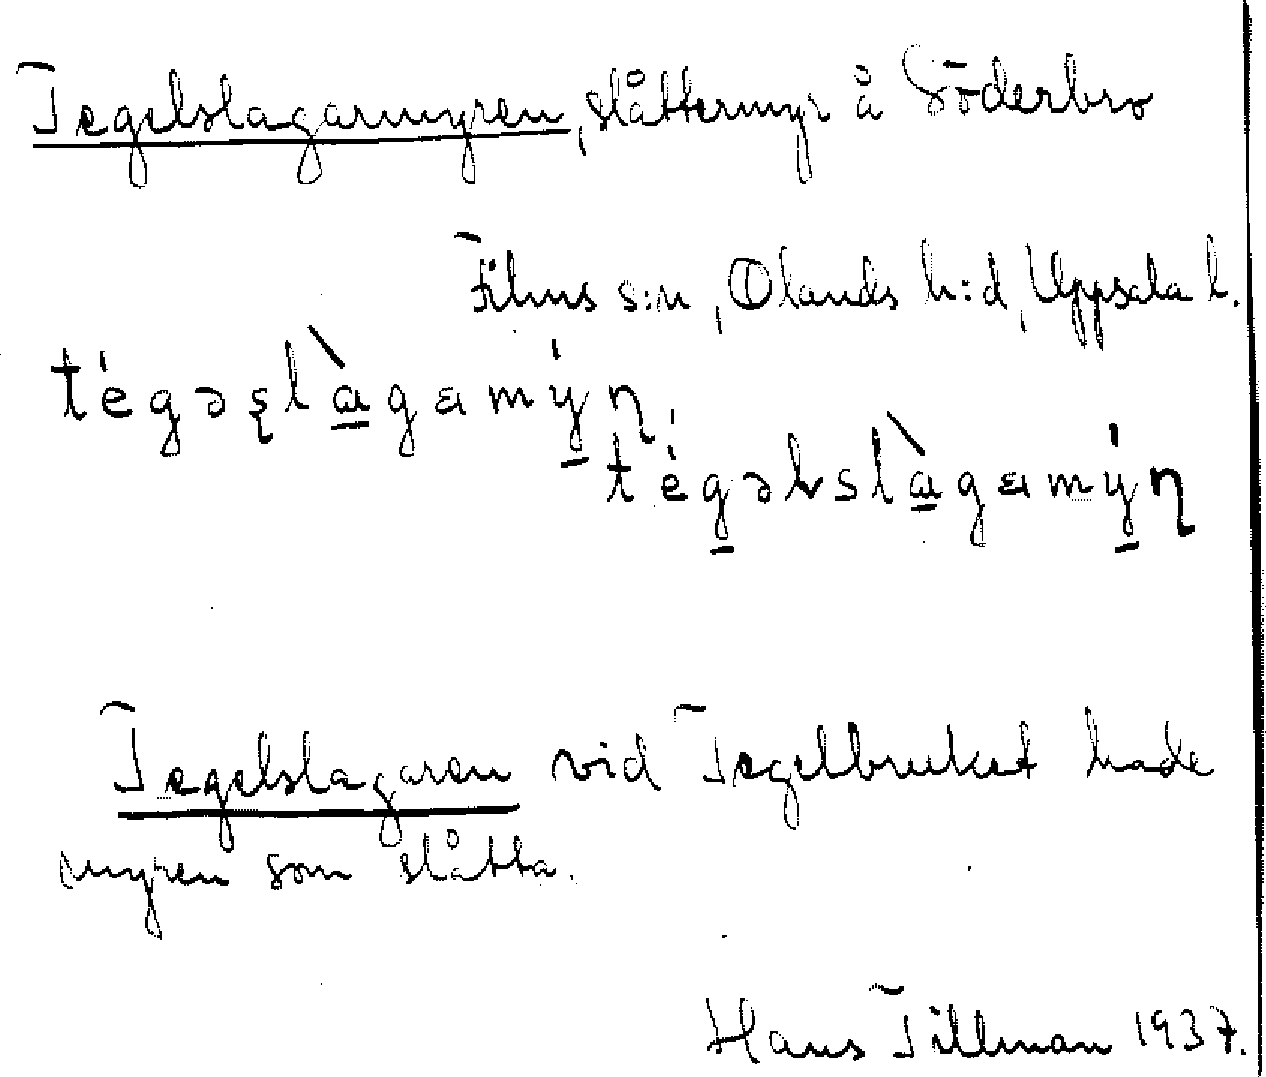 Tegelslagarmyren, slåttermyr å Söderbro
Films s:n, Olands h:d, Uppsala l.
tégəșlàgamýn,
tégəlslàgamýn
Tegelslagaren vid Tegelbruket hade
myren som slåtta.
Hans Tillman 1937.